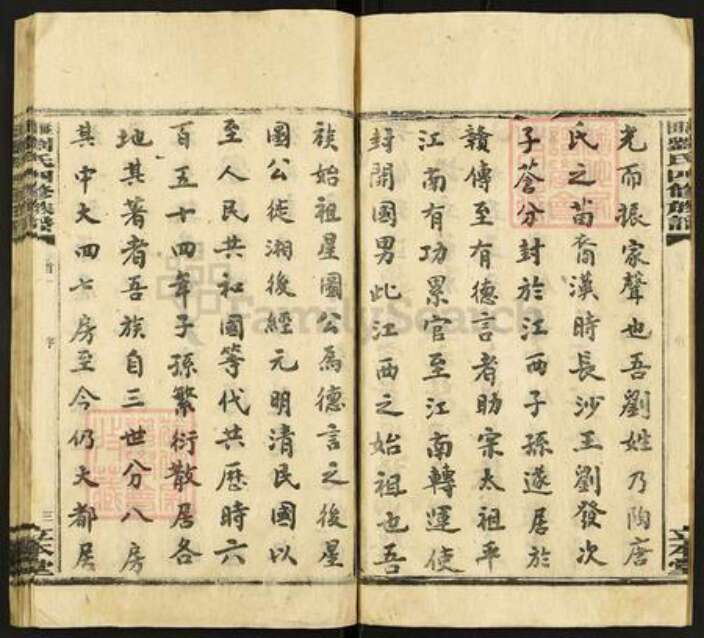 光而振家聲也吾劉姓乃陶唐
氏之苗裔漢時長沙王劉發次
子蒼分封於江西子孫遂居於
贛傳至有德言者助宋太祖平
江南有功累官至江南轉運使
封開國男此江西之始祖也吾
族始祖星國公為德言之後星
國公徙湘後經元明清民國以
至人民共和國等代共歷時六
百五十四年子孫繁衍散居各
地其著者吾族自三世分八房
其中大四七房至今仍大都居
劉氏四修族譜
序
三
立本堂
劉氏四修族譜
立本堂
FamilySearch